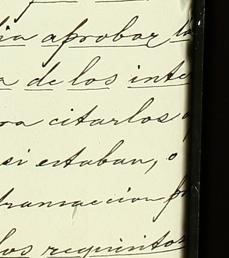 aprobar la
de los inte
citarlos
si estaban, o
transaccion
los requisitos